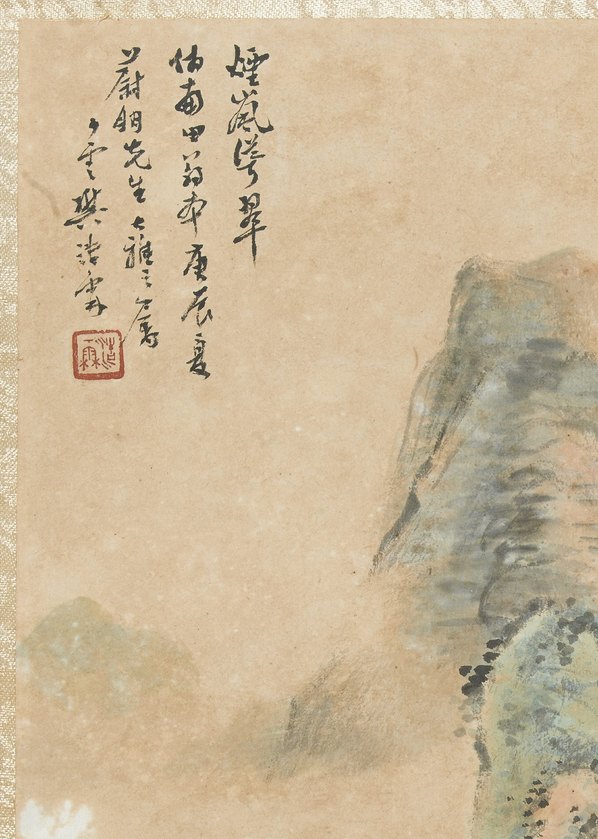 煙嵐浮翠
仿南田翁本庚辰夏
蔚朗先生大雅之屬
少雲樊浩霖
浩霖